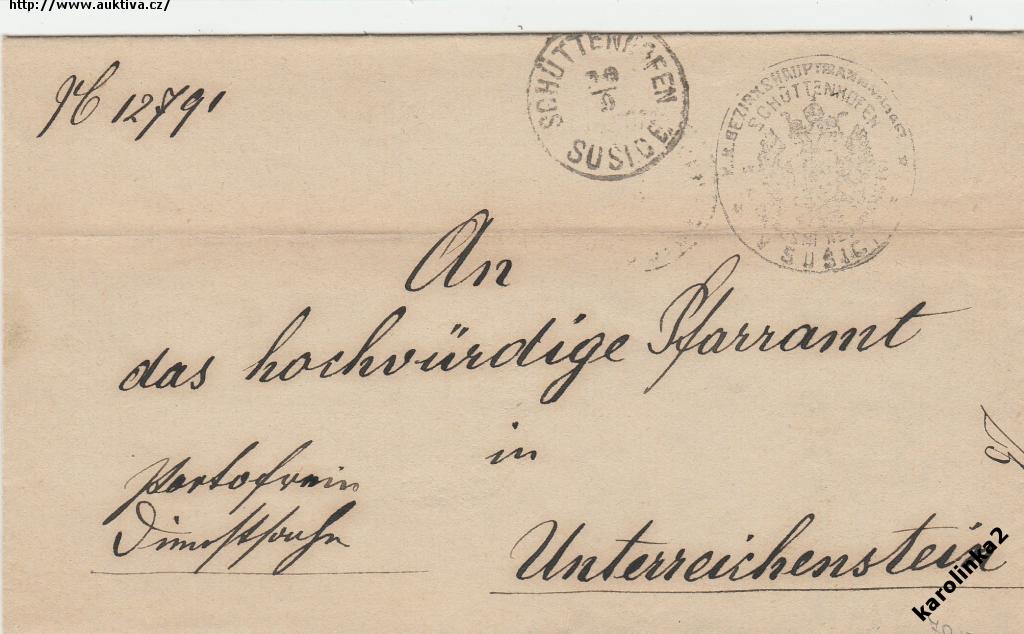 http://www.auktiva.cz/
№ 12791
SCHÜTTENHOFEN
SUŠICE
K.K. BEZIRKSHAUPTMANNSCHAFT
SCHÜTTENHOFEN
SUŠICI
An
das hochwürdige Pfarramt
in
Portofreie
Dienstsache
Unterreichenstein
karolinka2